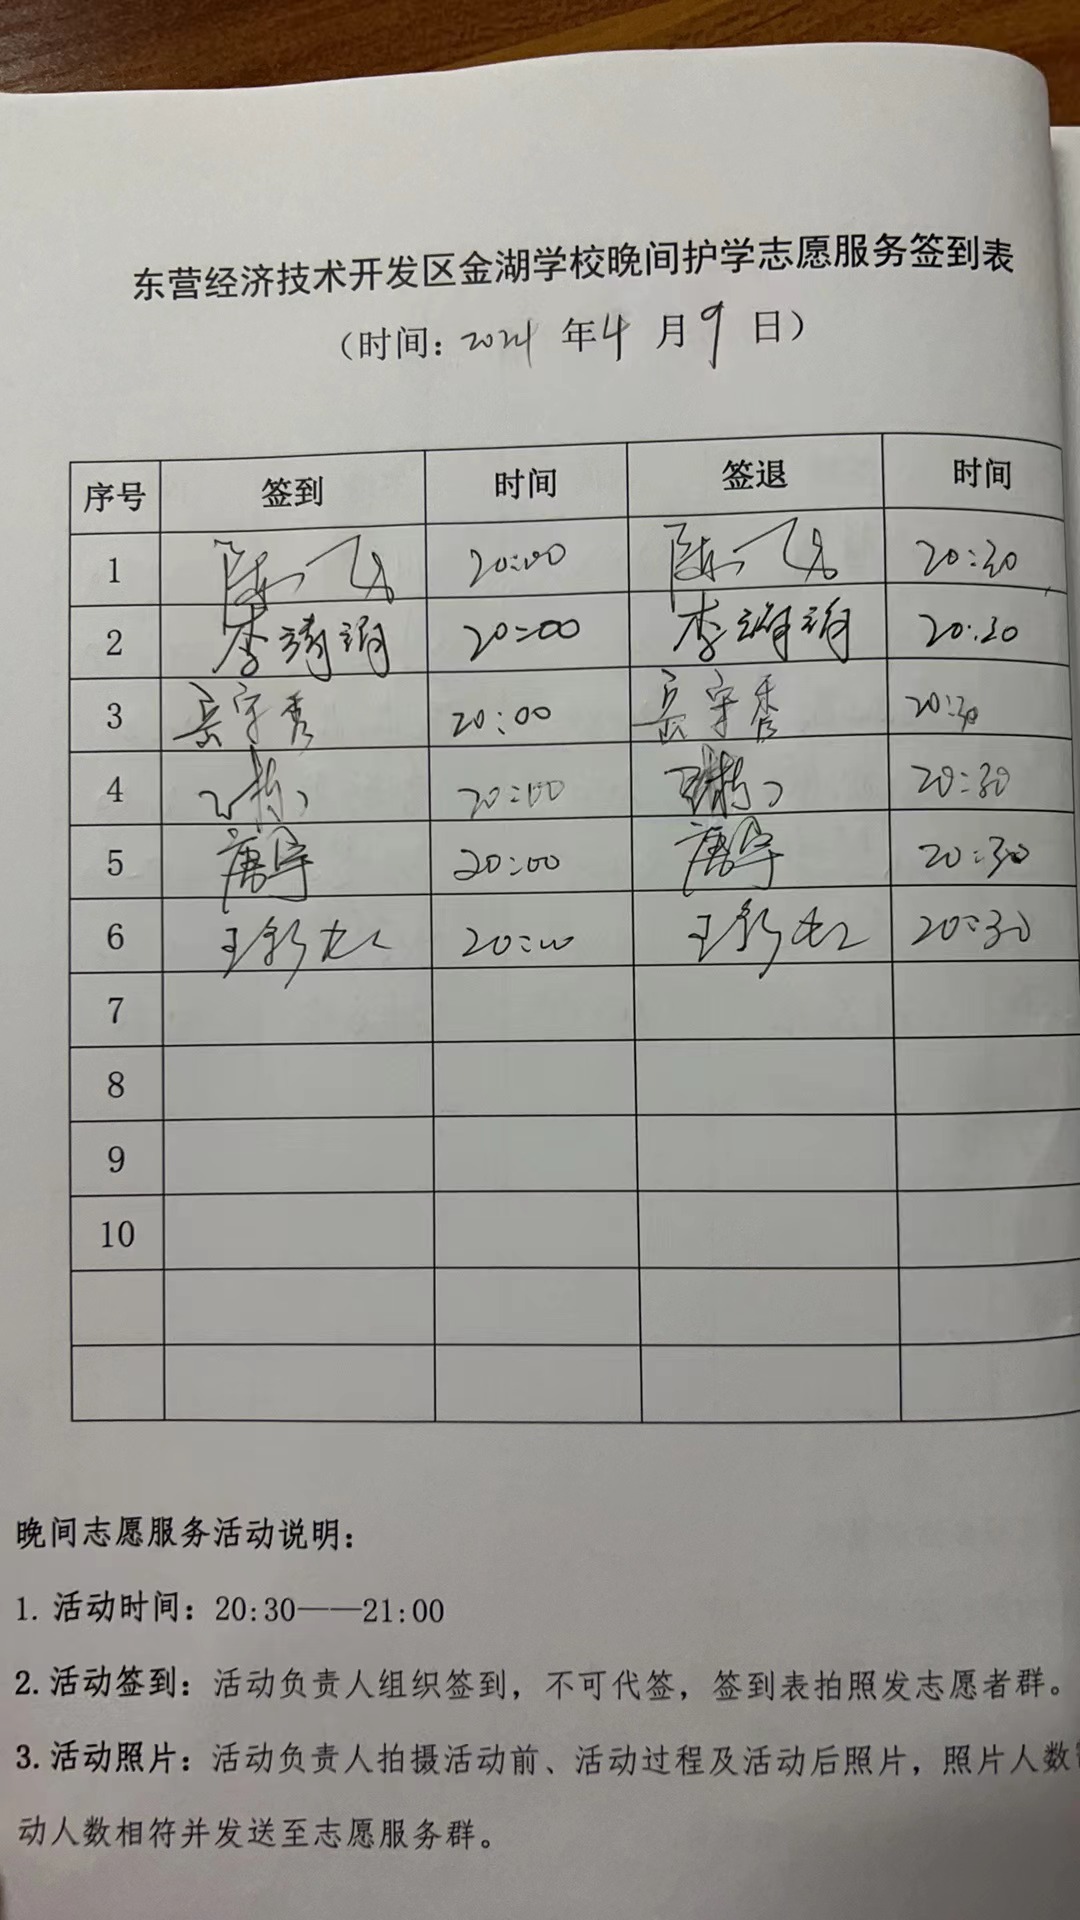 东营经济技术开发区金湖学校晚间护学志愿服务签到表
（时间：2024 年 4 月 9 日）
序号 签到 时间 签退 时间
1 陈飞 20:00 陈飞 20:30
2 李 20:00 李 20:30
3 岳守秀 20:00 岳守秀 20:30
4 20:00 20:30
5 唐宇 20:00 唐宇 20:30
6 王彩 20:00 王彩 20:30
7
8
9
10
晚间志愿服务活动说明：
1. 活动时间：20:30——21:00
2. 活动签到：活动负责人组织签到，不可代签，签到表拍照发志愿者群。
3. 活动照片：活动负责人拍摄活动前、活动过程及活动后照片，照片人数
动人数相符并发送至志愿服务群。